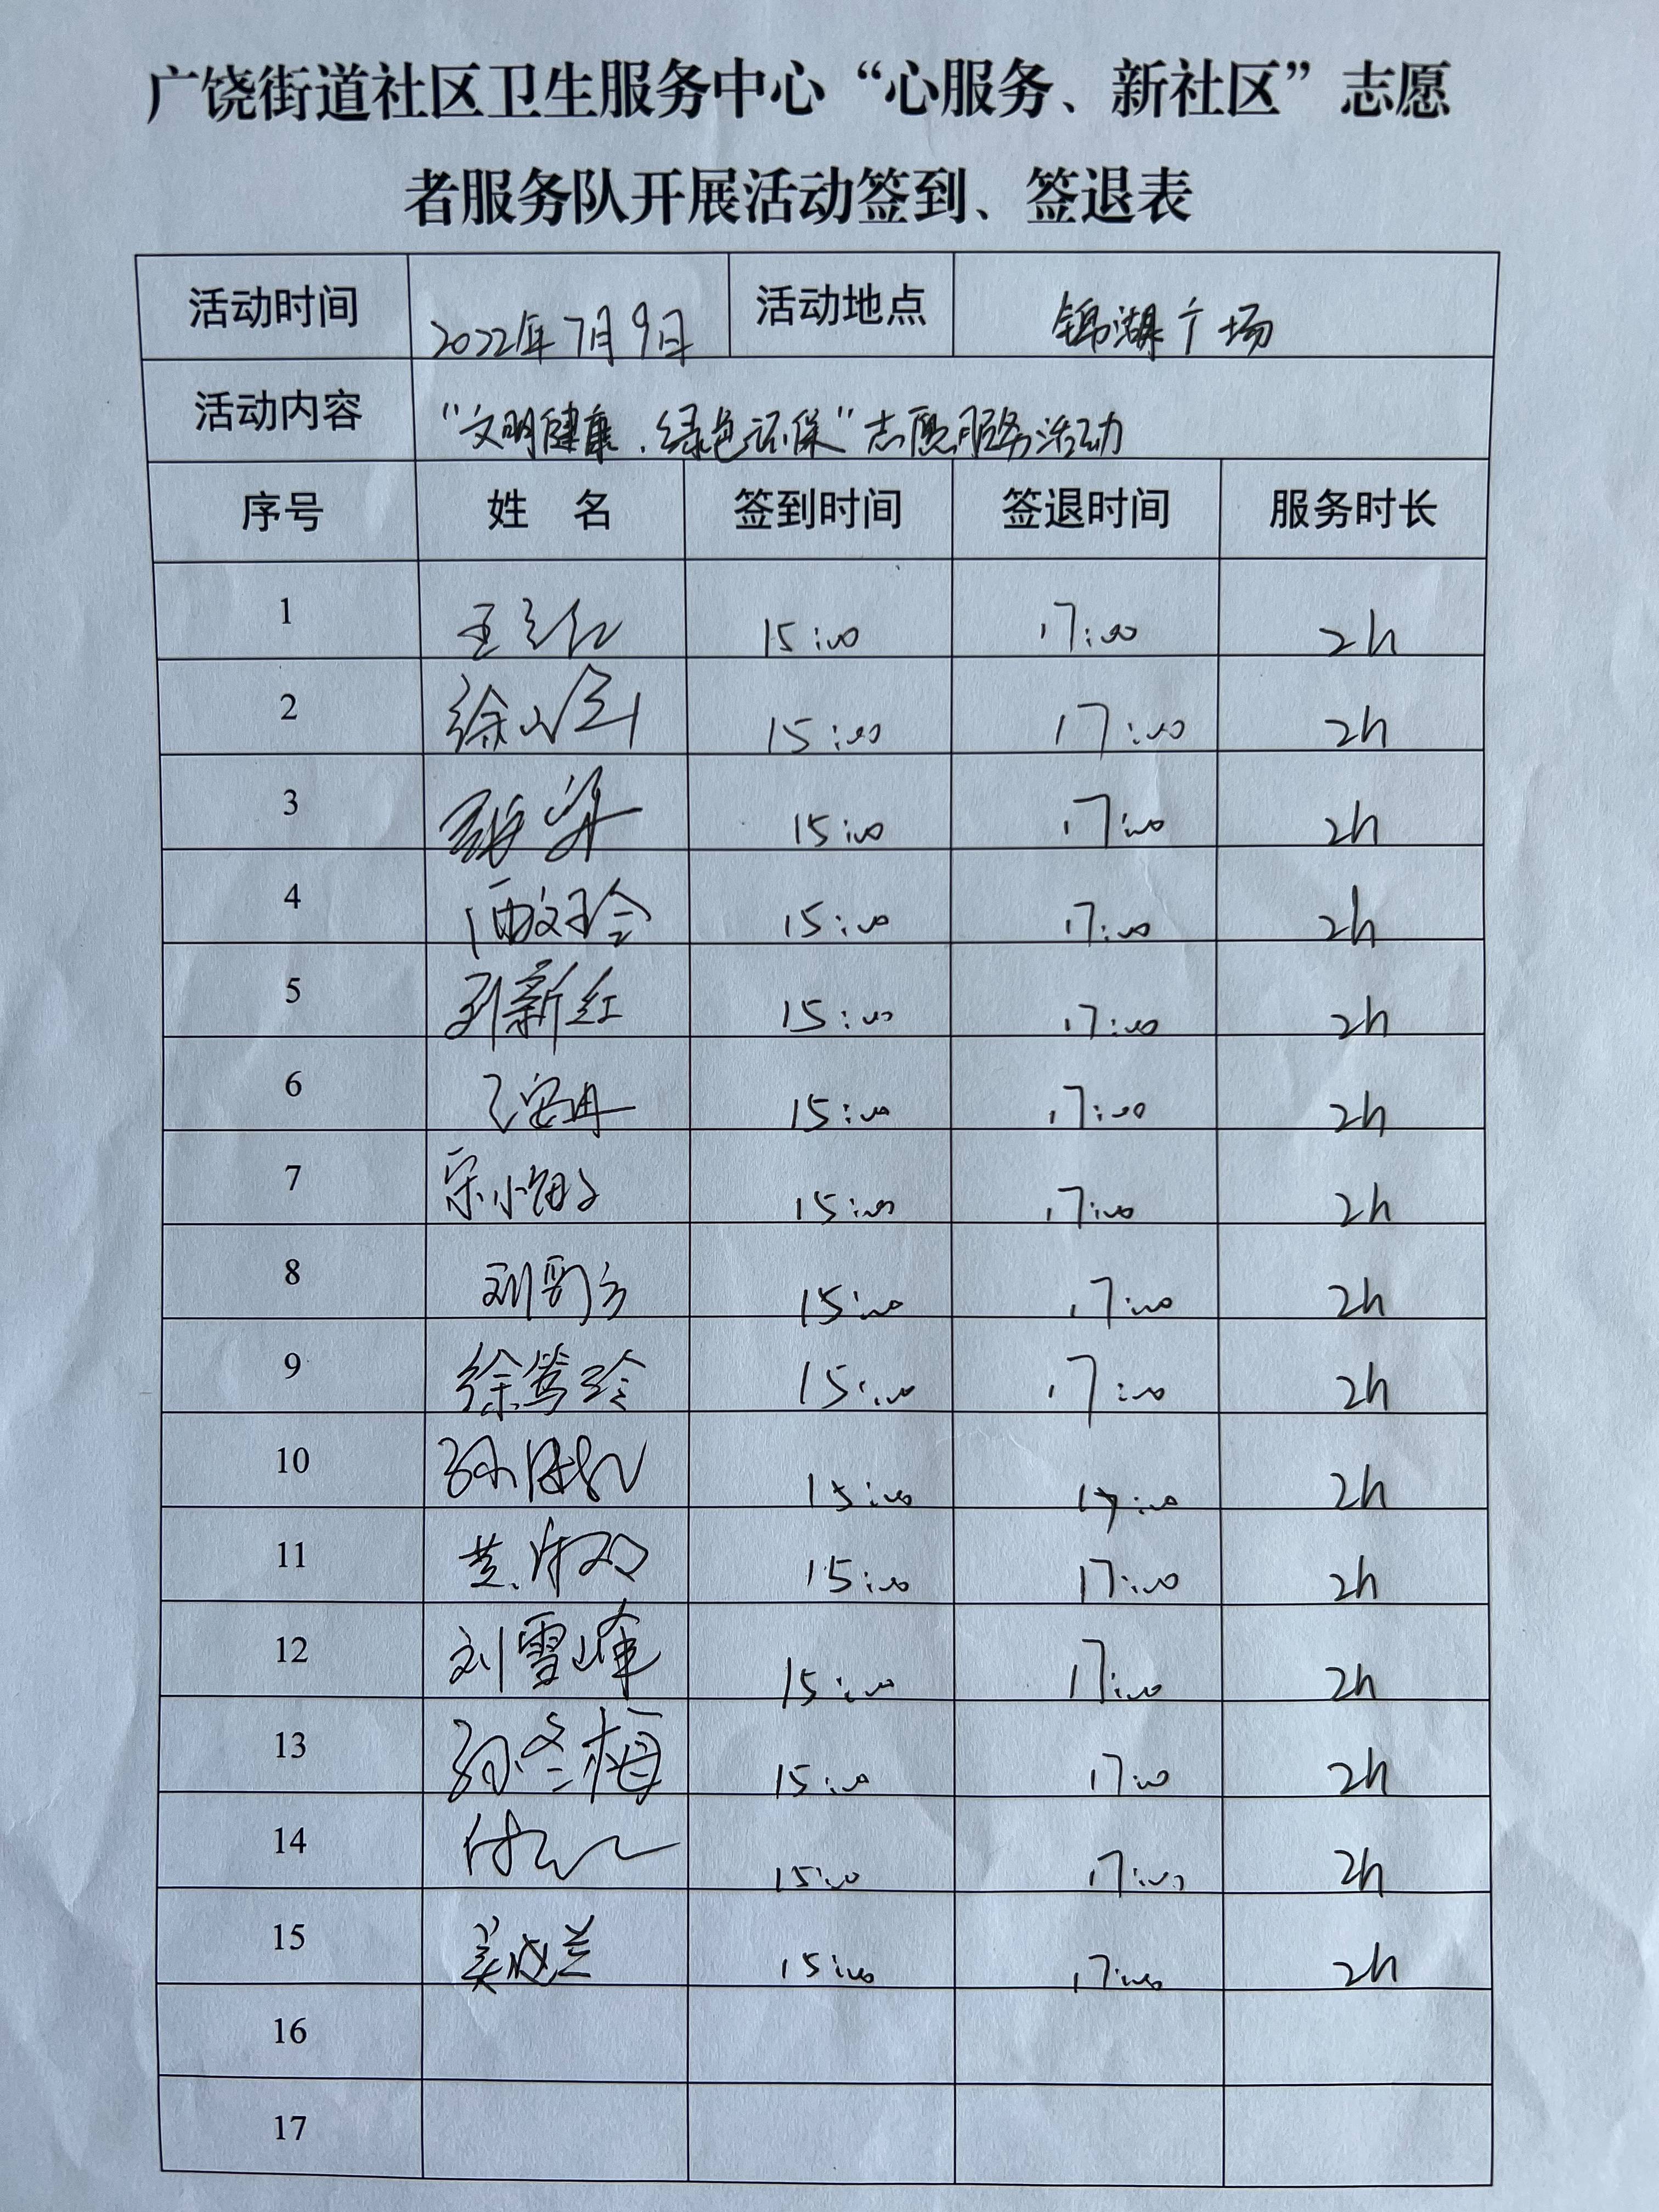 广饶街道社区卫生服务中心“心服务、新社区”志愿
者服务队开展活动签到、签退表
活动时间 2022年7月9日 活动地点 锦湖广场
活动内容 “文明健康、绿色环保”志愿服务活动
序号 姓 名 签到时间 签退时间 服务时长
1 15:00 17:00 2h
2 15:00 17:00 2h
3 15:00 17:00 2h
4 15:00 17:00 2h
5 刘新红 15:00 17:00 2h
6 15:00 17:00 2h
7 15:00 17:00 2h
8 15:00 17:00 2h
9 徐莺玲 15:00 17:00 2h
10 15:00 17:00 2h
11 15:00 17:00 2h
12 刘雪峰 15:00 17:00 2h
13 孙冬梅 15:00 17:00 2h
14 15:00 17:00 2h
15 15:00 17:00 2h
16
17